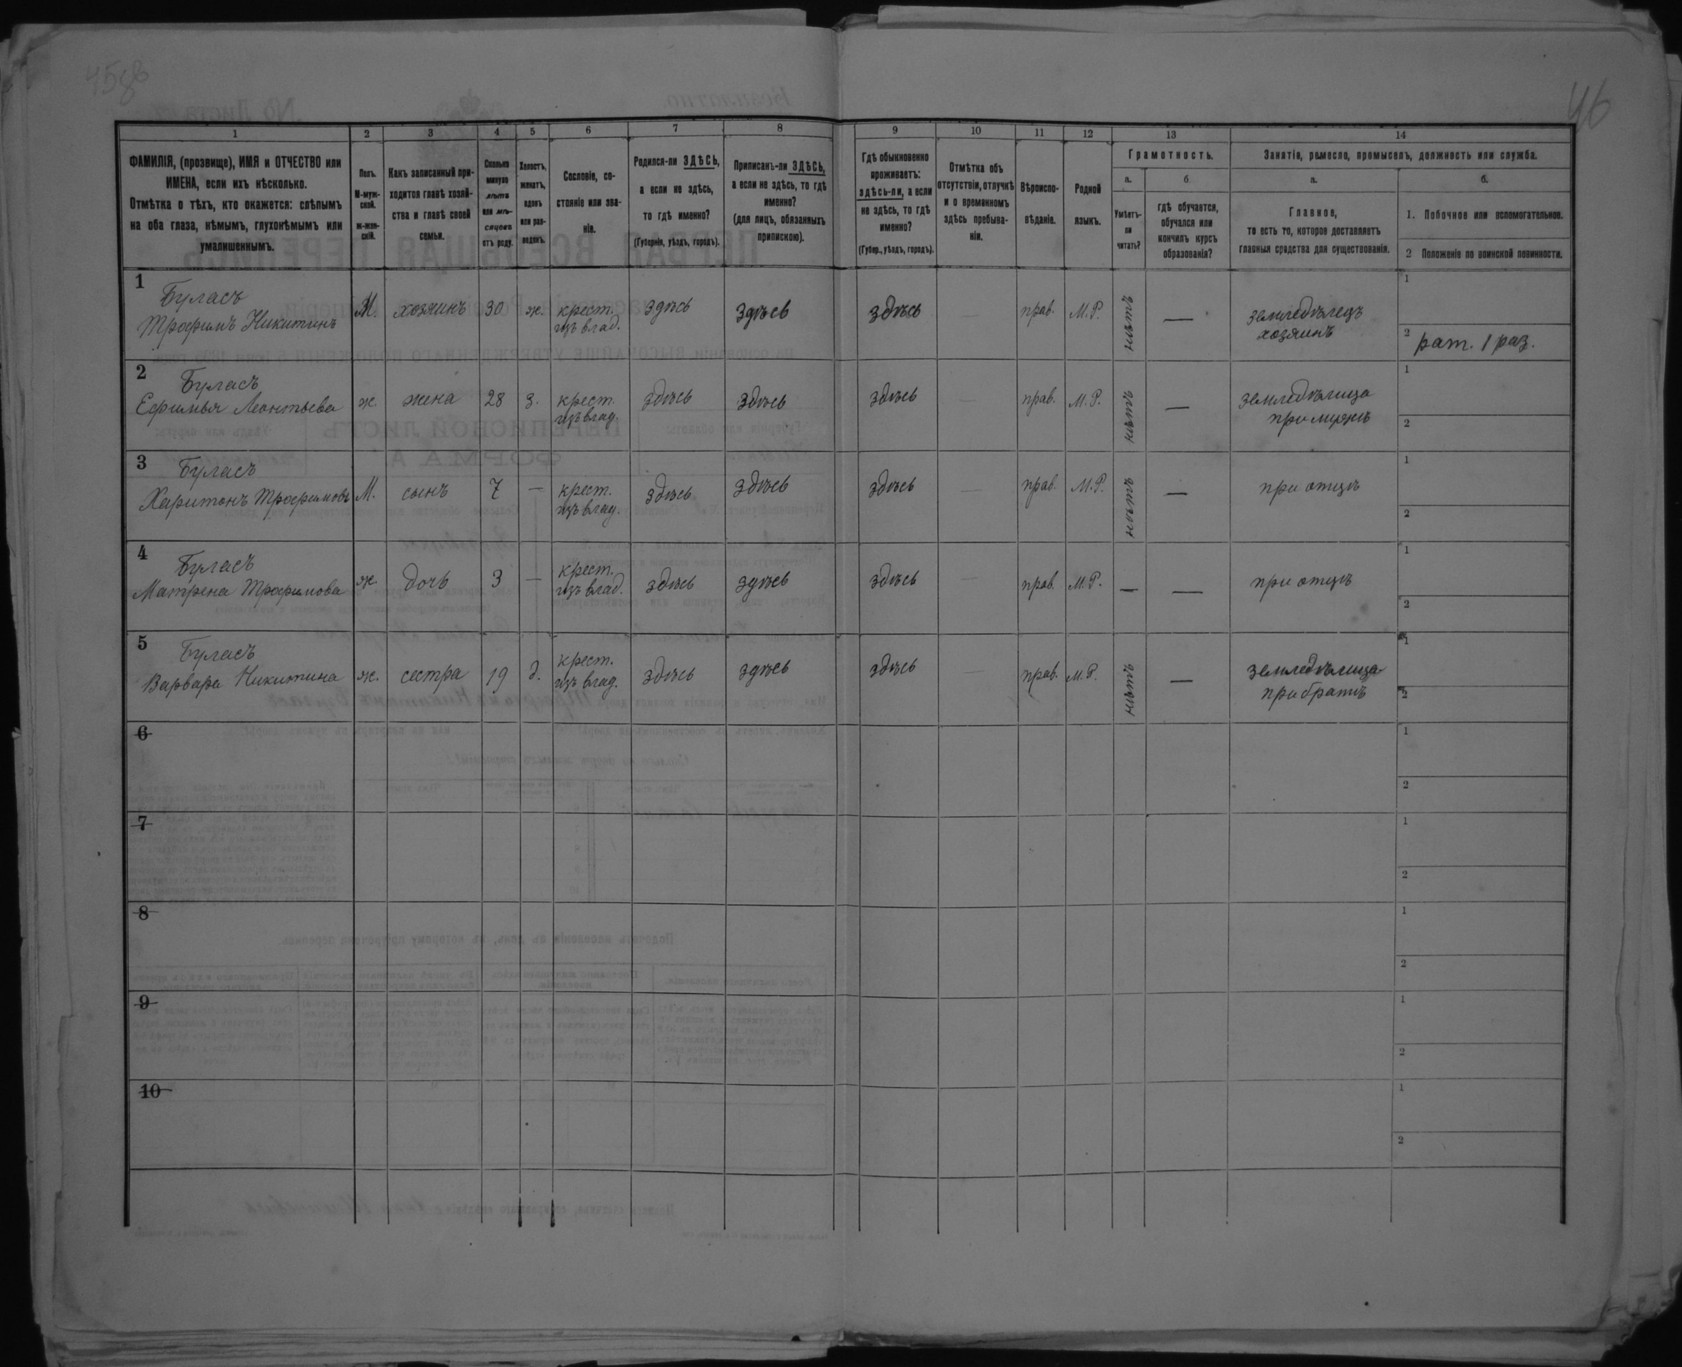 46
1 2 3 4 5 6 7 8 9 10 11 12 13 14
ФАМИЛІЯ, (прозвище), ИМЯ и ОТЧЕСТВО или
ИМЕНА, если ихъ нѣсколько.
Отмѣтка о тѣхъ, кто окажется: слѣпымъ
на оба глаза, нѣмымъ, глухонѣмымъ или
умалишеннымъ.
Полъ.
М-муж-
ской.
ж-жен-
скій.
Какъ записанный при-
ходится главѣ хозяй-
ства и главѣ своей
семьи.
Сколько
минуло
лѣтъ
или мѣ-
сяцевъ
отъ роду.
Холостъ,
женатъ,
вдовъ
или раз-
веденъ.
Сословіе, со-
стояніе или зва-
ніе.
Родился-ли ЗДѢСЬ,
а если не здѣсь,
то гдѣ именно?
(Губернія, уѣздъ, городъ).
Приписанъ-ли ЗДѢСЬ,
а если не здѣсь, то гдѣ
именно?
(для лицъ, обязанныхъ
припискою).
Гдѣ обыкновенно
проживаетъ:
здѣсь-ли, а если
не здѣсь, то гдѣ
именно?
(Губер., уѣздъ, городъ).
Отмѣтка объ
отсутствіи, отлучкѣ
и о временномъ
здѣсь пребыва-
ніи.
Вѣроиспо-
вѣданіе.
Родной
языкъ.
Грамотность.
а.
Умѣетъ-
ли
читать?
б.
гдѣ обучается,
обучался или
кончилъ курсъ
образованія?
Занятіе, ремесло, промыселъ, должность или служба.
а.
Главное,
то есть то, которое доставляетъ
главныя средства для существованія.
б.
1. Побочное или вспомогательное.
2 Положеніе по воинской повинности.
1
Буласъ
Трофимъ Никитинъ
М. хозяинъ 30 ж. крест.
изъ влад.
здѣсь здѣсь здѣсь — прав. М.Р. нѣтъ —
земледѣлецъ
хозяинъ
1
2 рат. 1 раз.
2
Буласъ
Ефимья Леонтьева
ж. жена 28 з. крест.
изъ влад.
здѣсь здѣсь здѣсь — прав. М.Р. нѣтъ —
земледѣлица
при мужѣ
1
2
3
Буласъ
Харитонъ Трофимовъ
М. сынъ 7 — крест.
изъ влад.
здѣсь здѣсь здѣсь — прав. М.Р. нѣтъ —
при отцѣ
1
2
4
Буласъ
Матрена Трофимова
ж. дочь 3 — крест.
изъ влад.
здѣсь здѣсь здѣсь — прав. М.Р. — —
при отцѣ
1
2
5
Буласъ
Варвара Никитина
ж. сестра 19 д. крест.
изъ влад.
здѣсь здѣсь здѣсь — прав. М.Р. нѣтъ —
земледѣлица
при братѣ
1
2
6
1
2
7
1
2
8
1
2
9
1
2
10
1
2